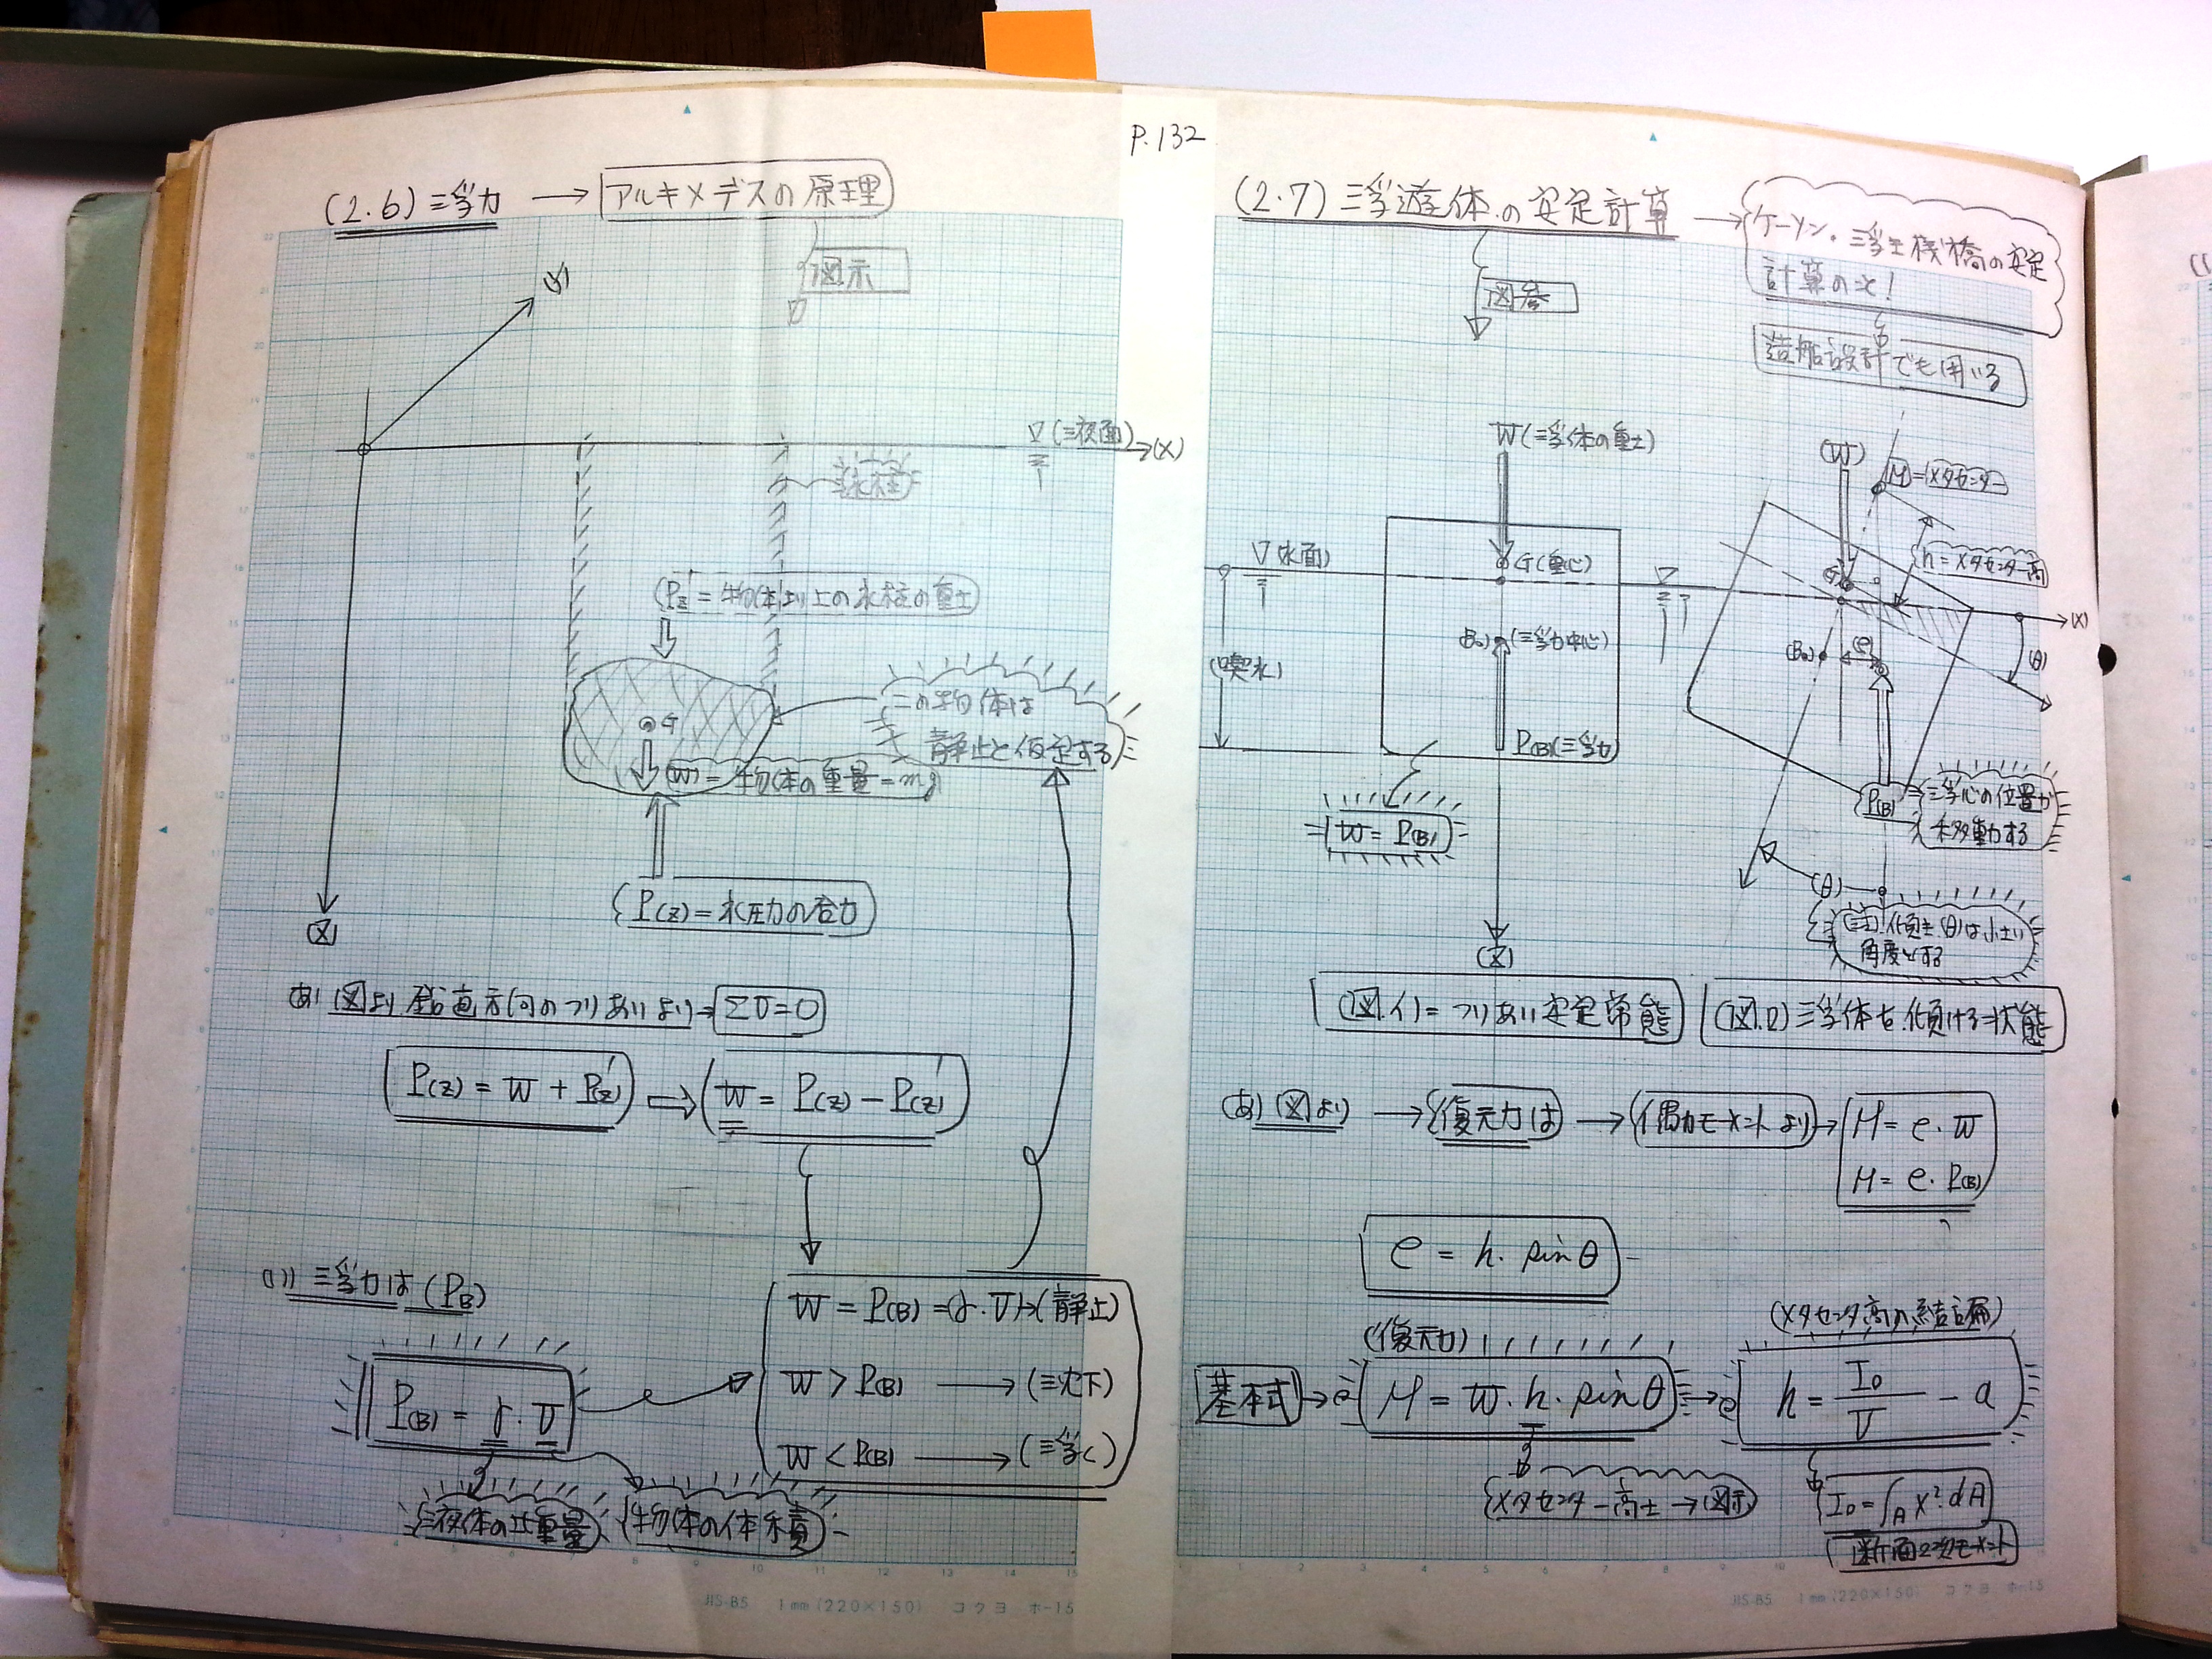 P.132
(2.6) 浮力 → アルキメデスの原理
図示
(y)
▽(液面) →(X)
水柱
P'z = 物体より上の水柱の重さ
この物体は
静止と仮定する
G
(W) = 物体の重量 = mg
P(z) = 水圧力の合力
(Z)
図より鉛直方向のつりあいより→ ΣV=0
P(z) = W + P'(z) ⇒ W = P(z) − P'(z)
(1) 浮力は (PB)
P(B) = γ・V
液体の比重量
物体の体積
W = P(B) = (γ・V)→(静止)
W > P(B) → (沈下)
W < P(B) → (浮く)
JIS-B5 1mm(220×150) コクヨ ホ-15
(2.7) 浮遊体の安定計算 → ケーソン・浮き桟橋の安定
計算の文!
図参
造船設計でも用いる
W(浮体の重さ)
▽(水面)
G(重心)
(B0) (浮力中心)
(喫水)
P(B)(浮力)
W = P(B)
(Z)
(W)
M=メタセンター
h=メタセンター高
G
▽
(X)
(B0)
(e)
(θ)
P(B)
浮心の位置が
移動する
(θ)
(注)傾き(θ)は小さい
角度とする
(図.イ) = つりあい安定常態
(図.ロ) 浮体を傾ける状態
(あ) 図より → 復元力は → 偶力モーメントより → M = e・W
M = e・P(B)
e = h・sinθ
(復元力)
(メタセンタ高の結論)
基本式 → M = W・h・sinθ → h = I0/V − a
メタセンター高さ → 図示
I0 = ∫A X²・dA
断面2次モーメント
JIS-B5 1mm(220×150) コクヨ ホ-15